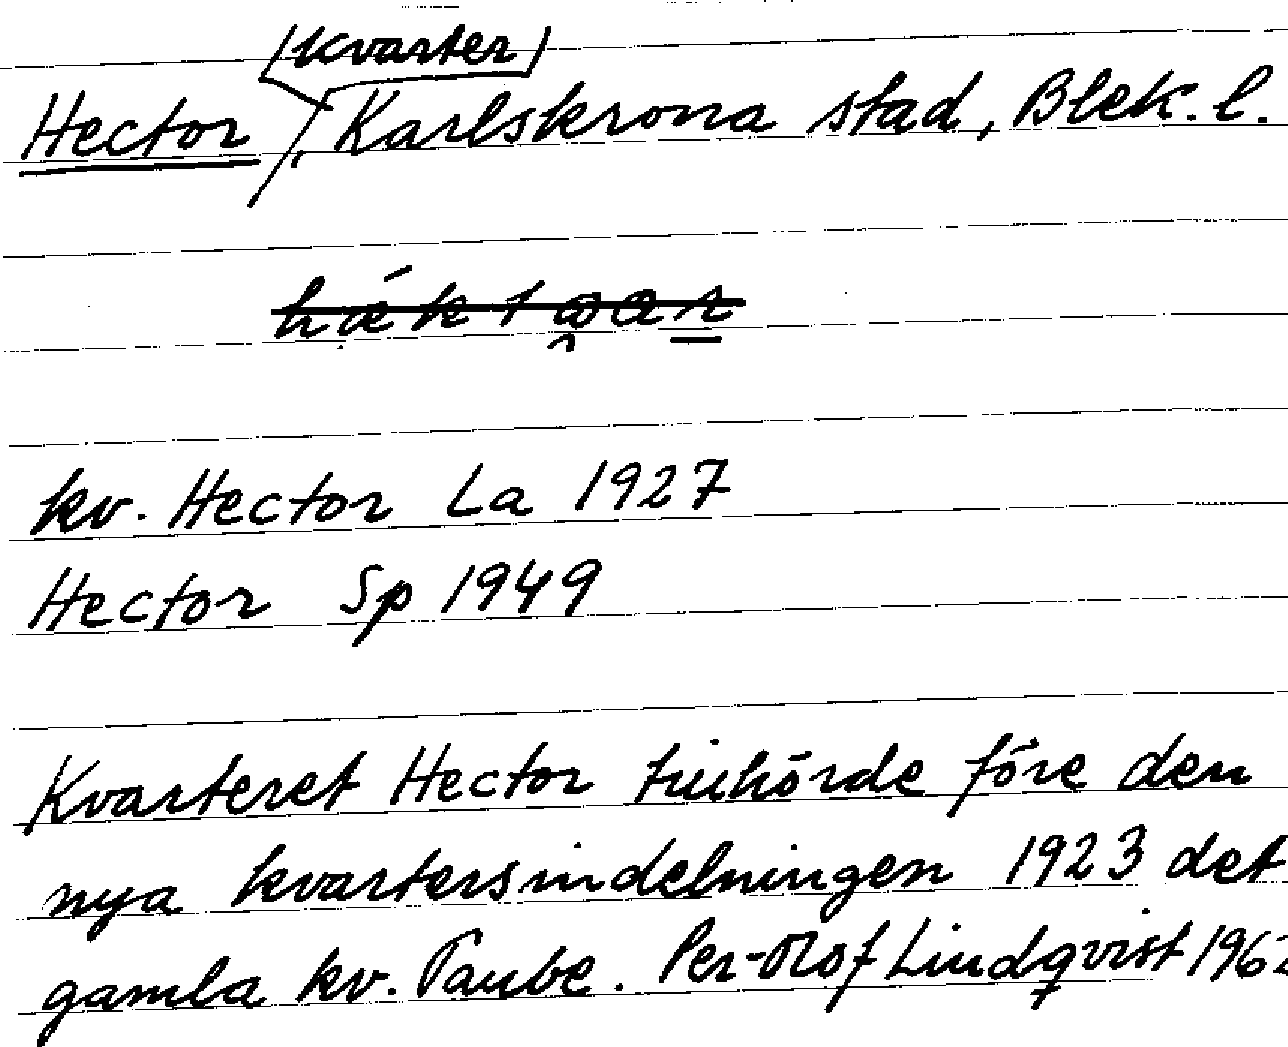 (kvarter)
Hector, Karlskrona stad, Blek. l.
kv. Hector La 1927
Hector Sp 1949
Kvarteret Hector tillhörde före den
nya kvartersindelningen 1923 det
gamla kv. Taube. Per-Olof Lindqvist 1962